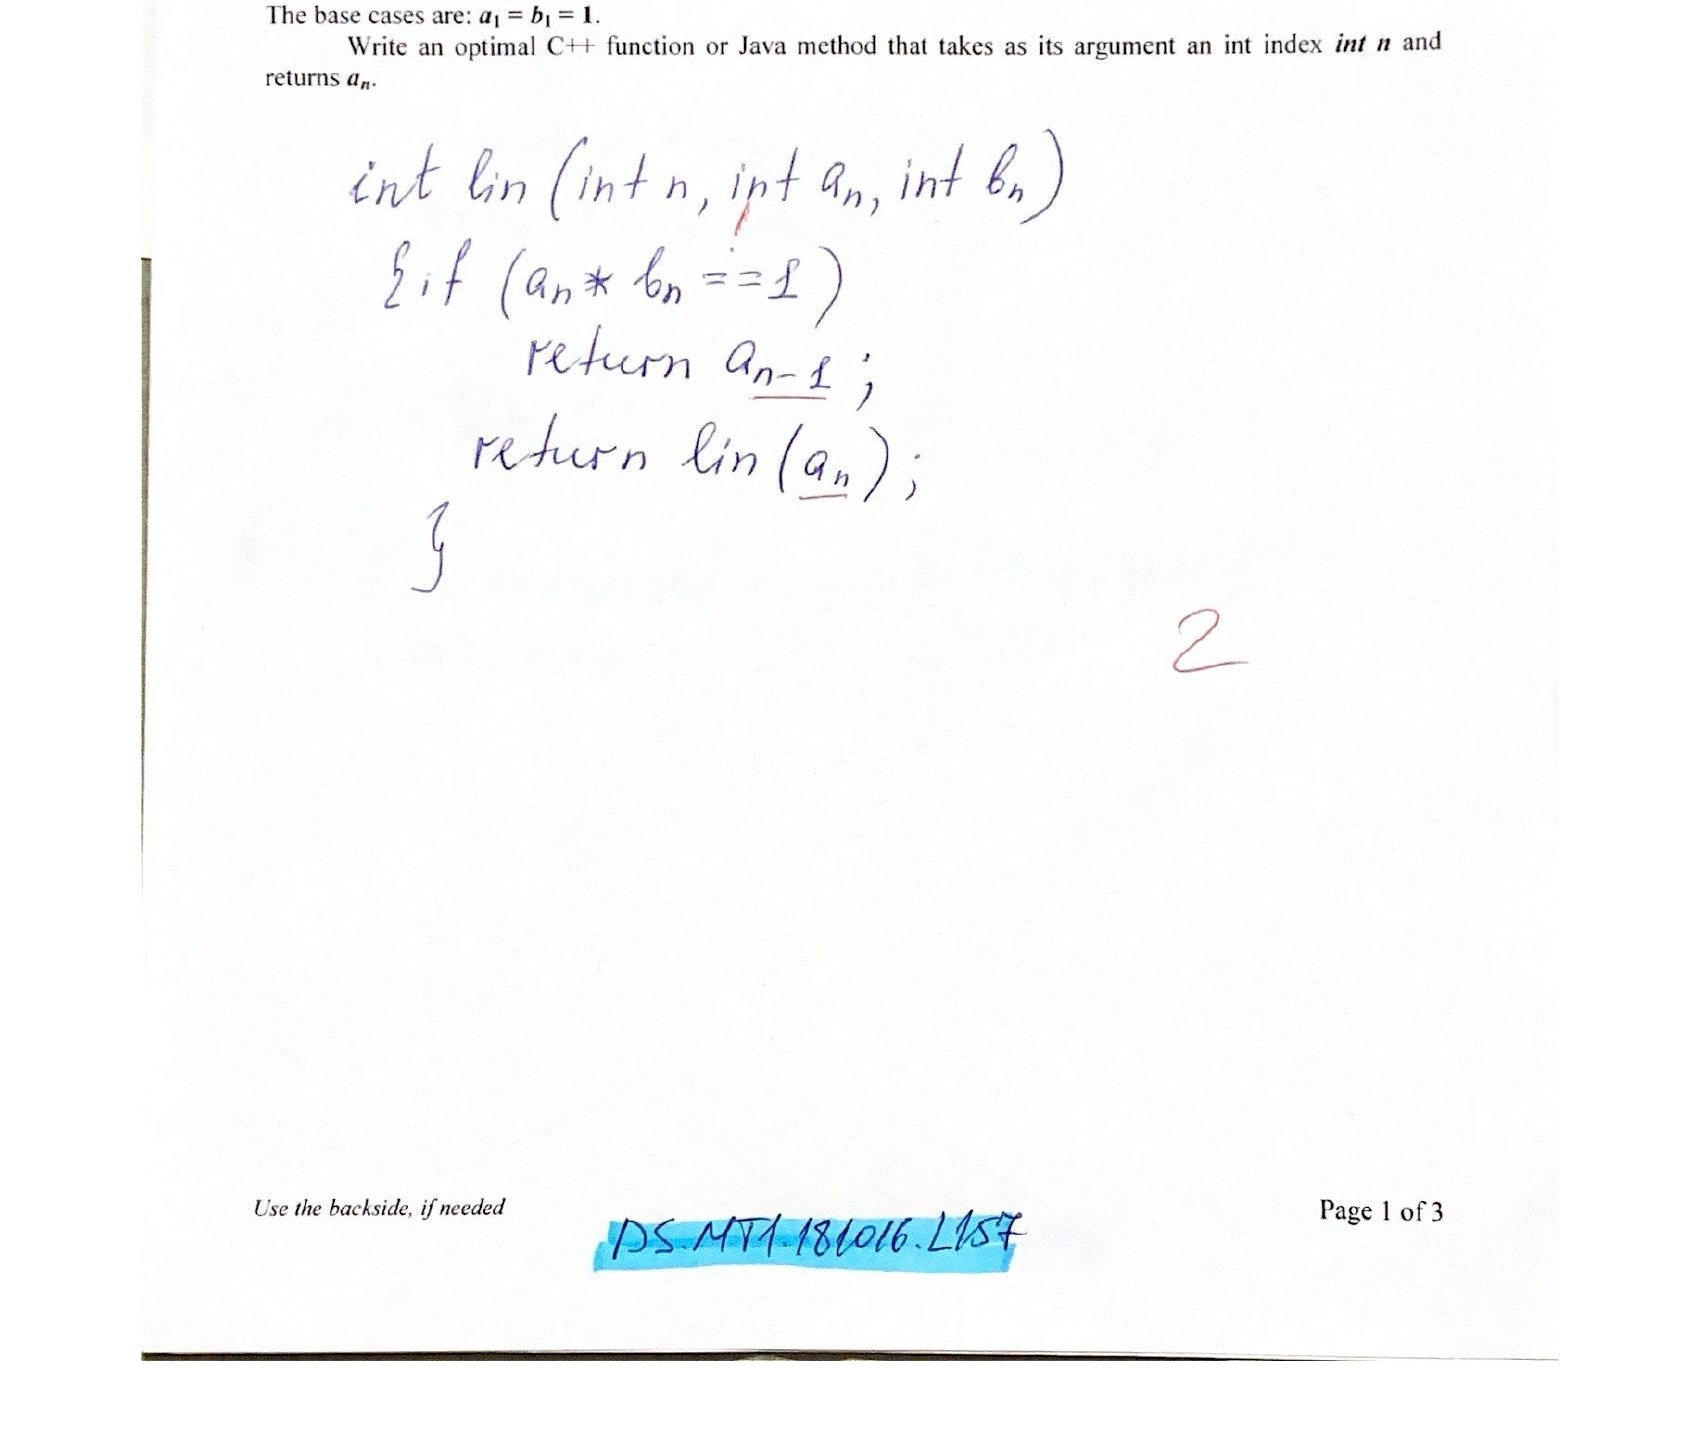 The base cases are: a₁ = b₁ = 1.
Write an optimal C++ function or Java method that takes as its argument an int index int n and
returns aₙ.
int lin (int n, int aₙ, int bₙ)
{if (aₙ * bₙ ==1)
return aₙ₋₁;
return lin (aₙ);
}
2
Use the backside, if needed
DS.MT1.181016.L157
Page 1 of 3